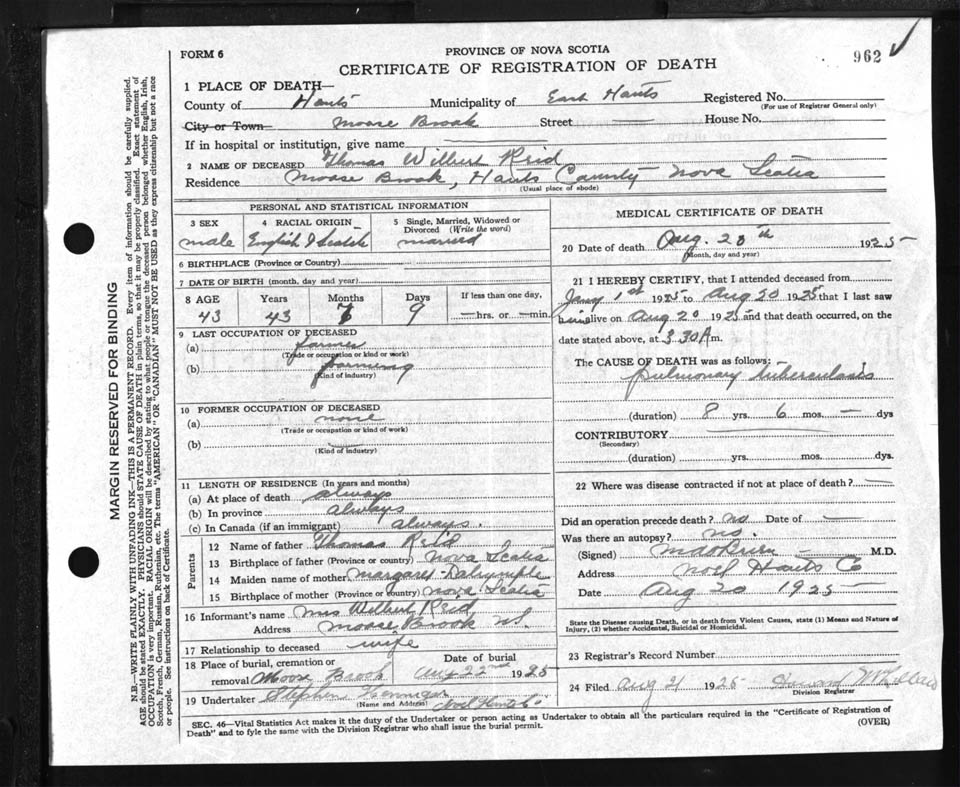 FORM 6
PROVINCE OF NOVA SCOTIA
962 ✓
CERTIFICATE OF REGISTRATION OF DEATH
1 PLACE OF DEATH—
County of Hants Municipality of East Hants Registered No.
(For use of Registrar General only)
City or Town Moose Brook Street — House No.
If in hospital or institution, give name —
2 NAME OF DECEASED Thomas Wilbert Reid
Residence Moose Brook, Hants County Nova Scotia
(Usual place of abode)
PERSONAL AND STATISTICAL INFORMATION
3 SEX 4 RACIAL ORIGIN 5 Single, Married, Widowed or Divorced (Write the word)
male English & Scotch married
6 BIRTHPLACE (Province or Country)
7 DATE OF BIRTH (month, day and year)
8 AGE Years Months Days If less than one day,
43 43 7 9 — hrs. or — min.
9 LAST OCCUPATION OF DECEASED
(a) farmer
(Trade or occupation or kind or work)
(b) farming
(Kind of industry)
10 FORMER OCCUPATION OF DECEASED
(a) none
(Trade or occupation or kind of work)
(b) —
(Kind of industry)
11 LENGTH OF RESIDENCE (In years and months)
(a) At place of death always
(b) In province always
(c) In Canada (if an immigrant) always.
Parents
12 Name of father Thomas Reid
13 Birthplace of father (Province or country) Nova Scotia
14 Maiden name of mother Margaret Dalrymple
15 Birthplace of mother (Province or country) Nova Scotia
16 Informant's name Mrs Wilbert Reid
Address Moose Brook N.S.
17 Relationship to deceased wife
18 Place of burial, cremation or removal Moose Brook Date of burial Aug 22nd 1925
19 Undertaker Stephen
(Name and Address) Noel Hants Co
MEDICAL CERTIFICATE OF DEATH
20 Date of death Aug. 20th 1925
(Month, day and year)
21 I HEREBY CERTIFY, that I attended deceased from
Jany 1st 1925 to Aug 20 1925 that I last saw
him alive on Aug 20 1925 and that death occurred, on the
date stated above, at 3.30 A m.
The CAUSE OF DEATH was as follows:
pulmonary tuberculosis
(duration) 8 yrs. 6 mos. — dys
CONTRIBUTORY
(Secondary)
(duration) yrs. mos. dys.
22 Where was disease contracted if not at place of death? —
Did an operation precede death? no Date of —
Was there an autopsy? no.
(Signed) M.D.
Address Noel Hants Co
Date Aug 20 1925
State the Disease causing Death, or in death from Violent Causes, state (1) Means and Nature of
Injury, (2) whether Accidental, Suicidal or Homicidal.
23 Registrar's Record Number
24 Filed Aug 21 1925
Division Registrar
SEC. 46—Vital Statistics Act makes it the duty of the Undertaker or person acting as Undertaker to obtain all the particulars required in the "Certificate of Registration of
Death" and to fyle the same with the Division Registrar who shall issue the burial permit.
(OVER)
MARGIN RESERVED FOR BINDING
N.B.—WRITE PLAINLY WITH UNFADING INK—THIS IS A PERMANENT RECORD. Every item of information should be carefully supplied.
AGE should be stated EXACTLY. PHYSICIANS should STATE CAUSE OF DEATH in plain terms, so that it may be properly classified. Exact statement of
OCCUPATION is very important. RACIAL ORIGIN will be described by stating to what people or tongue the deceased person belonged whether English, Irish,
Scotch, French, German, Russian, Ruthenian, etc. The terms "AMERICAN" OR "CANADIAN" MUST NOT BE USED as they express citizenship but not a race
or people. See instructions on back of Certificate.